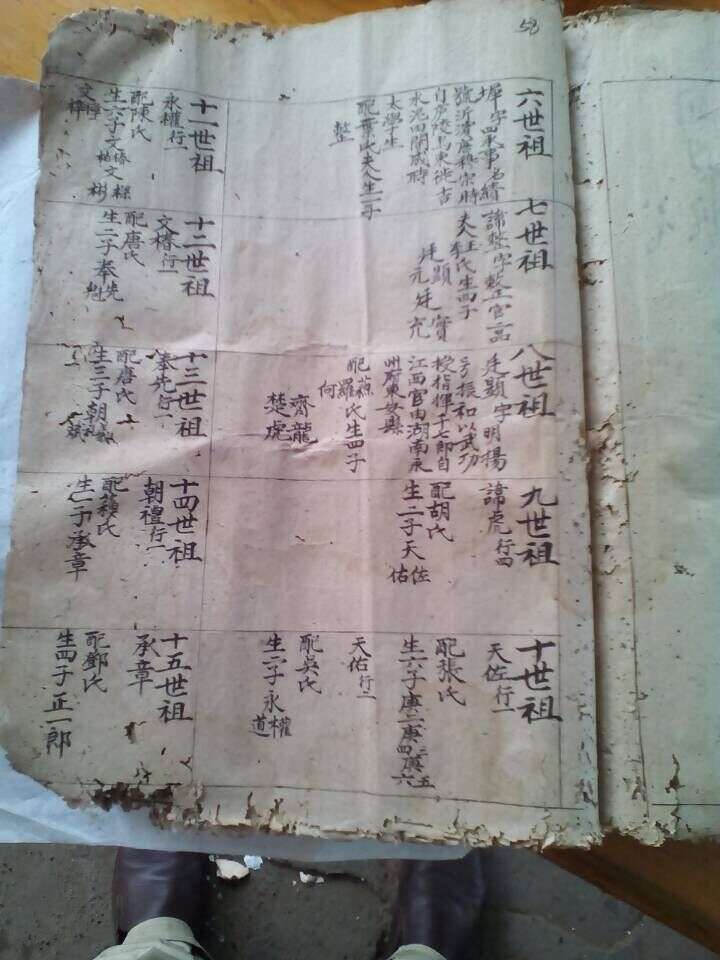 58
六世祖
墀字四承事名績
號沂濱唐穆宗時
自廬陵馬東徙吉
水泥田開成時
太學生
配葉氏夫人生一子
整
七世祖
諱整字整官言
夫人王氏生四子
廷顯 廷實
廷元 廷充
八世祖
廷顯字明楊
号振和以武功
授指揮十七郎自
江西官由湖南永
州府東安縣
配蘇羅何氏生四子
齊龍
楚虎
九世祖
諱虎行四
配胡氏
生二子天佐
佑
十世祖
天佐行一
配張氏
生六子庚二庚三庚五
四六
天佑行二
配吳氏
生二子永權
道
十一世祖
永權行一
配陳氏
生六子文椿文
彬
十二世祖
文椿行一
配唐氏
生二子奉先
魁
十三世祖
奉先行一
配唐氏
生三子朝
十四世祖
朝禮行一
配蘇氏
生一子承章
十五世祖
承章
配鄧氏
生四子正一郎